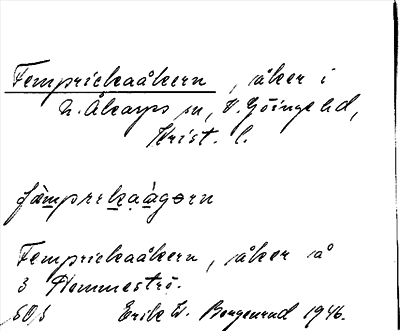 Fempricka​åkern, åker i
N. Åkarps sn, V. Göinge hd,
Krist. l.
fämprekaágərn
Femprickaåkern, åker å
3 Hommeströ.
50,5 Erik W. Borgenrud 1946.